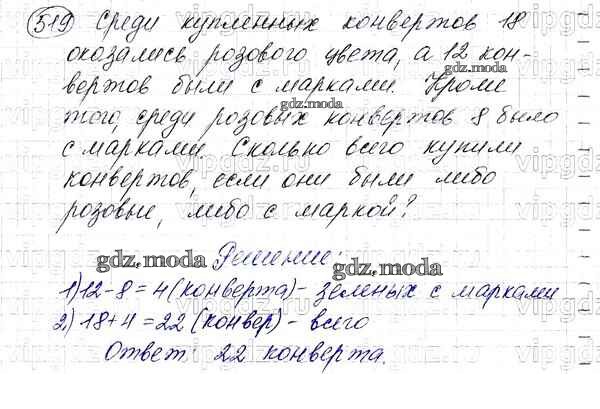 519 Среди купленных конвертов 18
оказались розового цвета, а 12 кон-
вертов были с марками. Кроме
того, среди розовых конвертов 8 было
с марками. Сколько всего купили
конвертов, если они были либо
розовые, либо с маркой?
Решение:
1) 12-8=4 (конверта)- зеленых с марками
2) 18+4=22 (конвер) - всего
Ответ: 22 конверта.
gdz.moda
gdz.moda
gdz.moda
gdz.moda